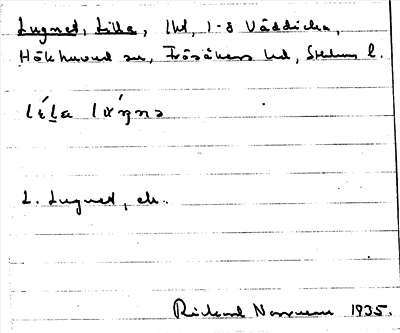 Lugnet, Lilla, lht, 1-8 Väddicka,
Hökhuvud sn, Frösåkers hd, Sthlms l.
lɩ́la lɷ́ŋnə
L. Lugnet, ek.
Rickard 1935.